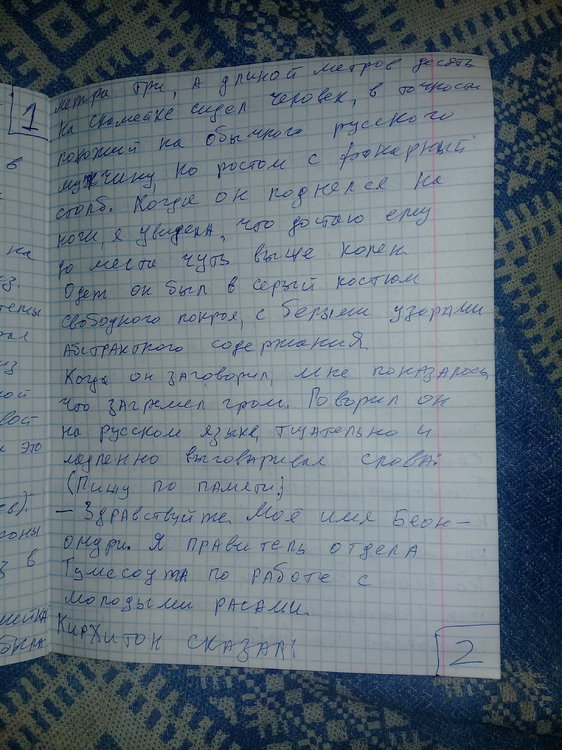 1
в
на
это
в
метра три, а длиной метров десять
на скамейке сидел человек, в точности
похожий на обычного русского
мужчину, но ростом с фонарный
столб. Когда он поднялся на
ноги, я увидела, что достаю ему
до места чуть выше колен.
Одет он был в серый костюм
свободного покроя, с белыми узорами
абстрактного содержания.
Когда он заговорил, мне показалось,
что загремел гром. Говорил он
на русском языке, тщательно и
медленно выговаривая слова:
(Пишу по памяти)
– Здравствуйте. Моё имя Беон-
омури. Я правитель отдела
Тумесоута по работе с
молодыми расами.
Кирхитон сказал:
2